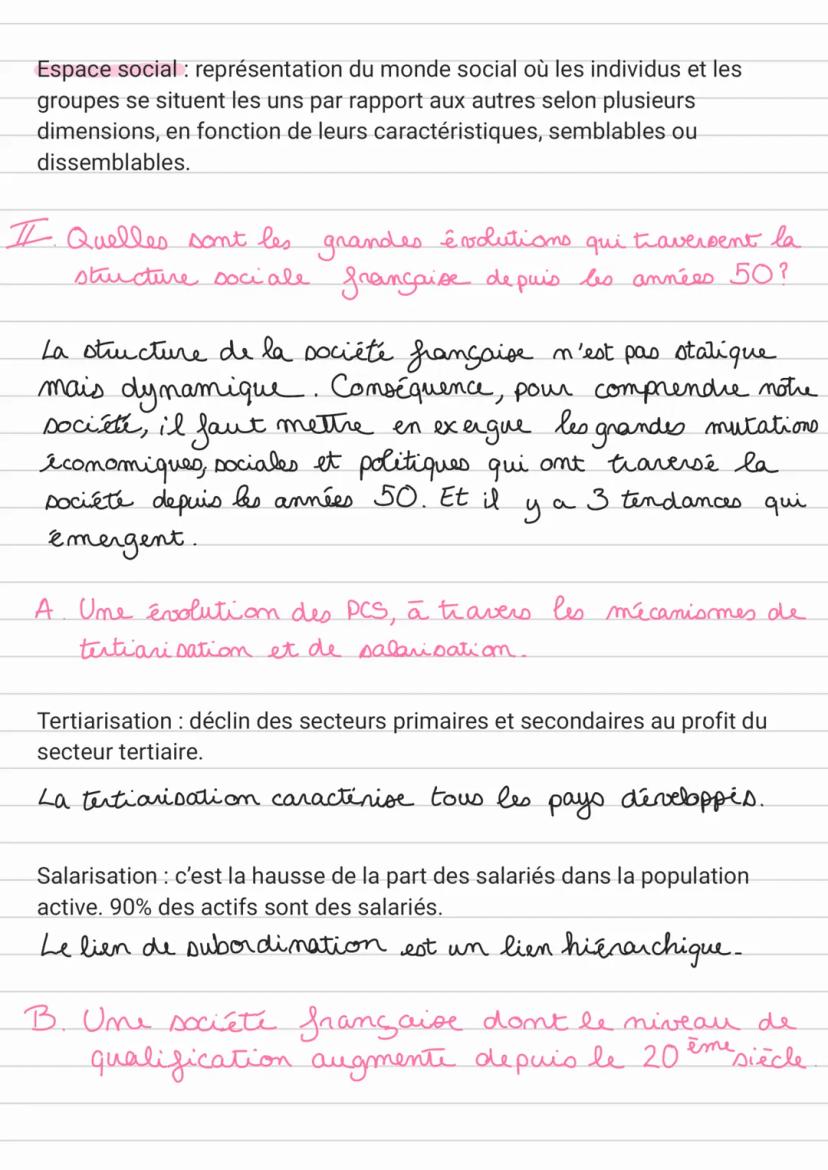 Espace social : représentation du monde social où les individus et les
groupes se situent les uns par rapport aux autres selon plusieurs
dimensions, en fonction de leurs caractéristiques, semblables ou
dissemblables.
II. Quelles sont les grandes évolutions qui traversent la
structure sociale française depuis les années 50?
La structure de la société française n'est pas statique
mais dynamique. Conséquence, pour comprendre notre
société, il faut mettre en exergue les grandes mutations
économiques, sociales et politiques qui ont traversé la
société depuis les années 50. Et il y a 3 tendances qui
émergent.
A. Une évolution des PCS, à travers les mécanismes de
tertiarisation et de salarisation.
Tertiarisation : déclin des secteurs primaires et secondaires au profit du
secteur tertiaire.
La tertiarisation caractérise tous les pays développés.
Salarisation : c’est la hausse de la part des salariés dans la population
active. 90% des actifs sont des salariés.
Le lien de subordination est un lien hiérarchique.
B. Une société française dont le niveau de
qualification augmente depuis le 20ème siècle.